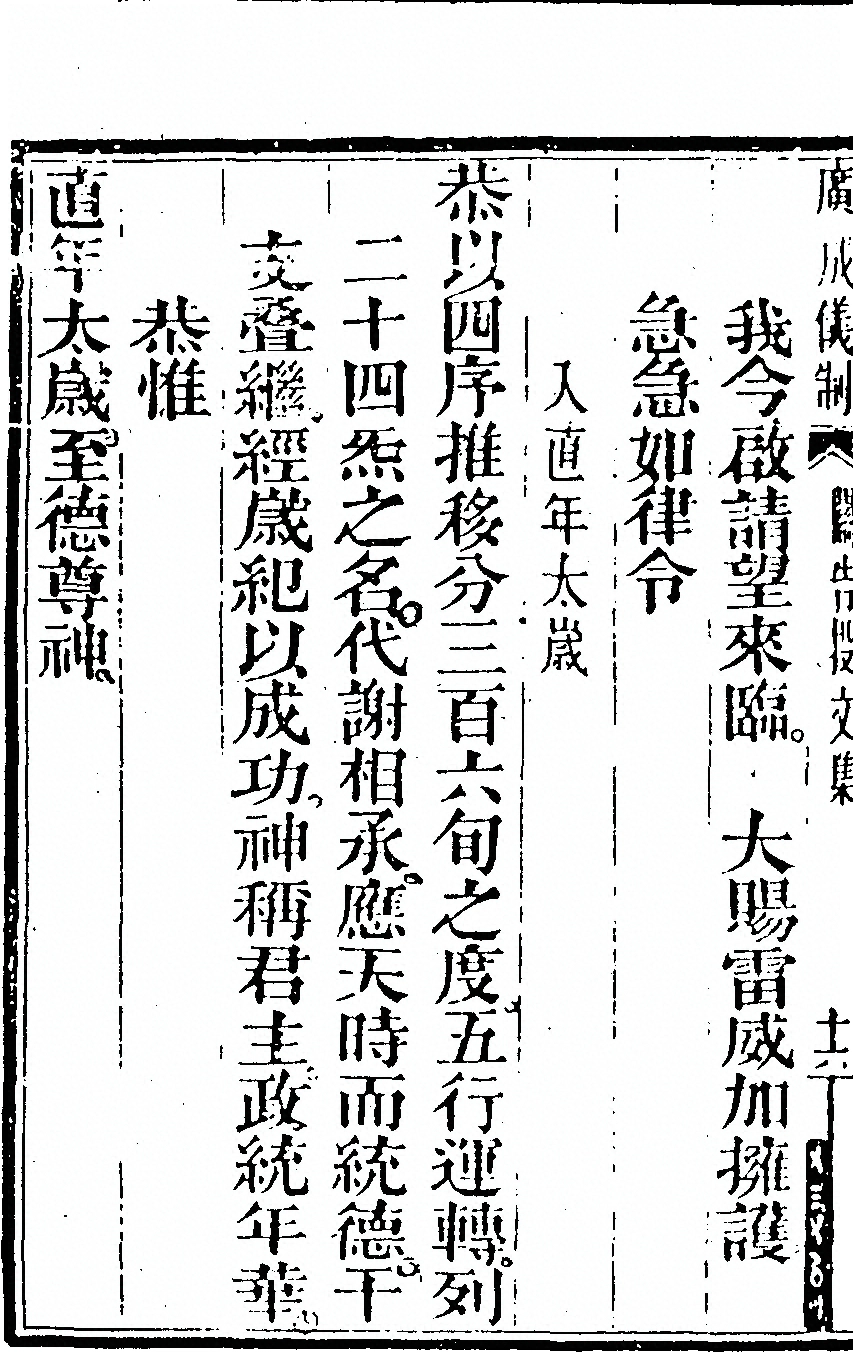 廣成儀制
文集
我今啟請望來臨。大賜雷威加擁護
急急如律令
入直年太歲
恭以四序推移分三百六旬之度。五行運轉。列
二十四炁之名。代謝相承。應天時而統德。干
支叠繼。經歲紀以成功。神稱君主。政統年華。
恭惟
直年太歲。至德尊神。